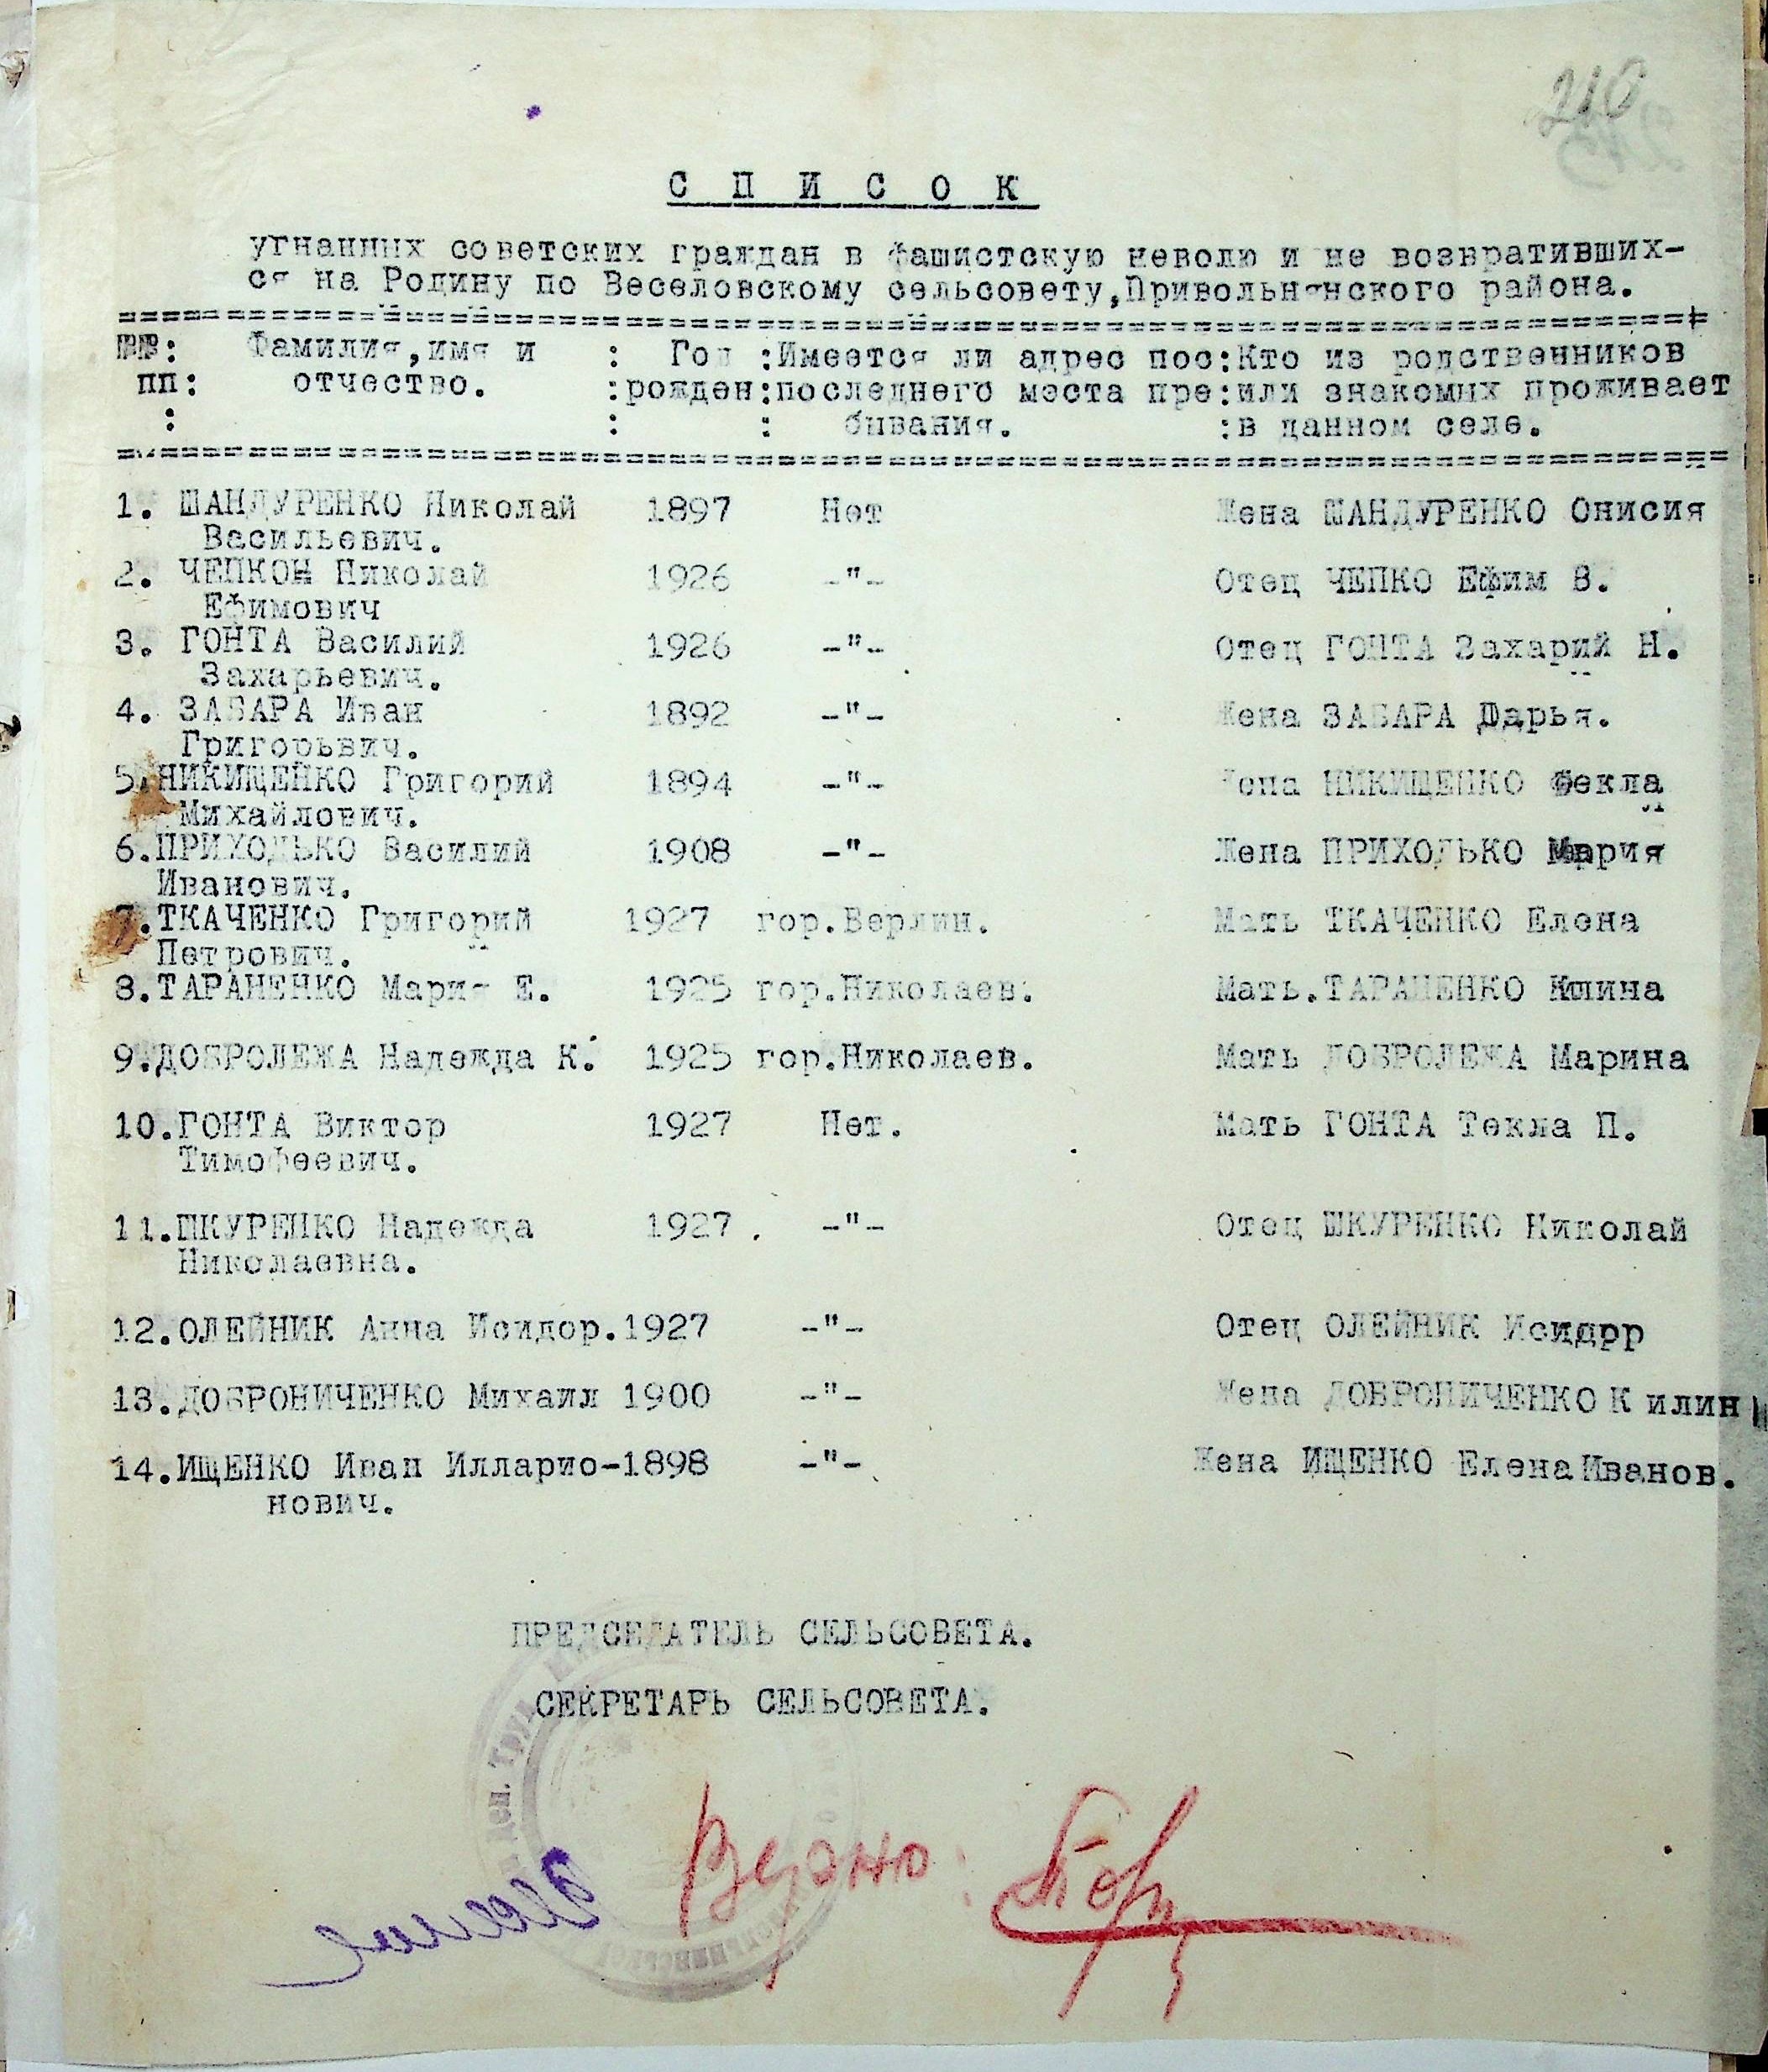 210
С П И С О К
угнанных советских граждан в фашистскую неволю и не возвративших-
ся на Родину по Веселовскому сельсовету,Привольнянского района.
№№: Фамилия,имя и : Год :Имеется ли адрес пос:Кто из родственников
пп: отчество. :рожден:последнего места пре:или знакомых проживает
: : : бывания. :в данном селе.
1. ШАНДУРЕНКО Николай 1897 Нет Жена ШАНДУРЕНКО Онисия
Васильевич.
2. ЧЕПКОН Николай 1926 -"- Отец ЧЕПКО Ефим В.
Ефимович
3. ГОНТА Василий 1926 -"- Отец ГОНТА Захарий Н.
Захарьевич.
4. ЗАБАРА Иван 1892 -"- Жена ЗАБАРА Дарья.
Григорьвич.
5.НИКИЩЕНКО Григорий 1894 -"- Жена НИКИЩЕНКО Фекла
Михайлович.
6.ПРИХОДЬКО Василий 1908 -"- Жена ПРИХОДЬКО Мария
Иванович.
7.ТКАЧЕНКО Григорий 1927 гор.Берлин. Мать ТКАЧЕНКО Елена
Петрович.
8.ТАРАНЕНКО Мария Е. 1925 гор.Николаев. Мать.ТАРАНЕНКО Килина
9.ДОБРОЛЕЖА Надежда К. 1925 гор.Николаев. Мать ДОБРОЛЕЖА Марина
10.ГОНТА Виктор 1927 Нет. Мать ГОНТА Текла П.
Тимофеевич.
11.ШКУРЕНКО Надежда 1927. -"- Отец ШКУРЕНКО Николай
Николаевна.
12.ОЛЕЙНИК Анна Исидор.1927 -"- Отец ОЛЕЙНИК Исидор
13.ДОБРОНИЧЕНКО Михаил 1900 -"- Жена ДОБРОНИЧЕНКО К илин
14.ИЩЕНКО Иван Илларио-1898 -"- Жена ИЩЕНКО Елена Иванов.
нович.
ПРЕДСЕДАТЕЛЬ СЕЛЬСОВЕТА.
СЕКРЕТАРЬ СЕЛЬСОВЕТА.
Верно: